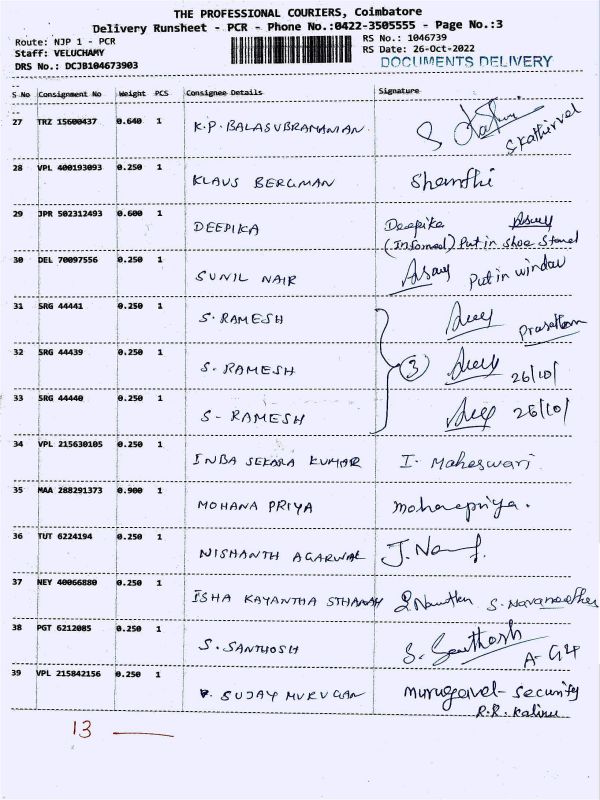 THE PROFESSIONAL COURIERS, Coimbatore
Delivery Runsheet - PCR - Phone No.:0422-3505555 - Page No.:3
Route: NJP 1 - PCR RS No.: 1046739
Staff: VELUCHAMY RS Date: 26-Oct-2022
DRS No.: DCJB104673903 DOCUMENTS DELIVERY
S No Consignment No Weight PCS Consignee Details Signature
27 TRZ 15600437 0.640 1 K.P. BALASUBRAMANIAN S Kathirvel
28 VPL 400193093 0.250 1 KLAUS BERGMAN Shanthi
29 JPR 502312493 0.600 1 DEEPIKA Deepika
(Informed) Put in shoe stand
30 DEL 70097556 0.250 1 SUNIL NAIR Put in window
31 SRG 44441 0.250 1 S. RAMESH
32 SRG 44439 0.250 1 S. RAMESH 3 26/10/
33 SRG 44440 0.250 1 S- RAMESH 26/10/
34 VPL 215630105 0.250 1 INBA SEKARA KUMAR I. Maheswari
35 MAA 288291373 0.900 1 MOHANA PRIYA mohanapriya.
36 TUT 6224194 0.250 1 NISHANTH AGARWAL
37 NEY 40066880 0.250 1 ISHA KAYANTHA STHANAM
38 PGT 6212085 0.250 1 S. SANTHOSH S. Santhosh
A-G4
39 VPL 215842156 0.250 1 SUJAY MURUGAN murugavel - security
13